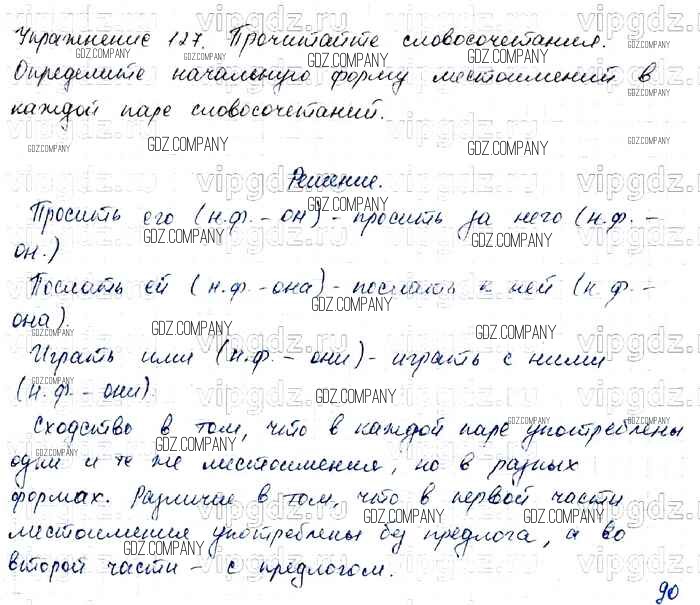 Упражнение 127. Прочитайте словосочетания.
Определите начальную форму местоимений в
каждой паре словосочетаний.
Решение.
Просить его (н.ф. - он) - просить за него (н.ф. -
он.)
Послать ей (н.ф. - она) - послать к ней (н.ф. -
она).
Играть ими (н.ф. - они) - играть с ними
(н.ф. - они).
Сходство в том, что в каждой паре употреблены
одни и те же местоимения, но в разных
формах. Различие в том, что в первой части
местоимения употреблены без предлога, а во
второй части - с предлогом.
90
vipgdz.ru
GDZ.COMPANY